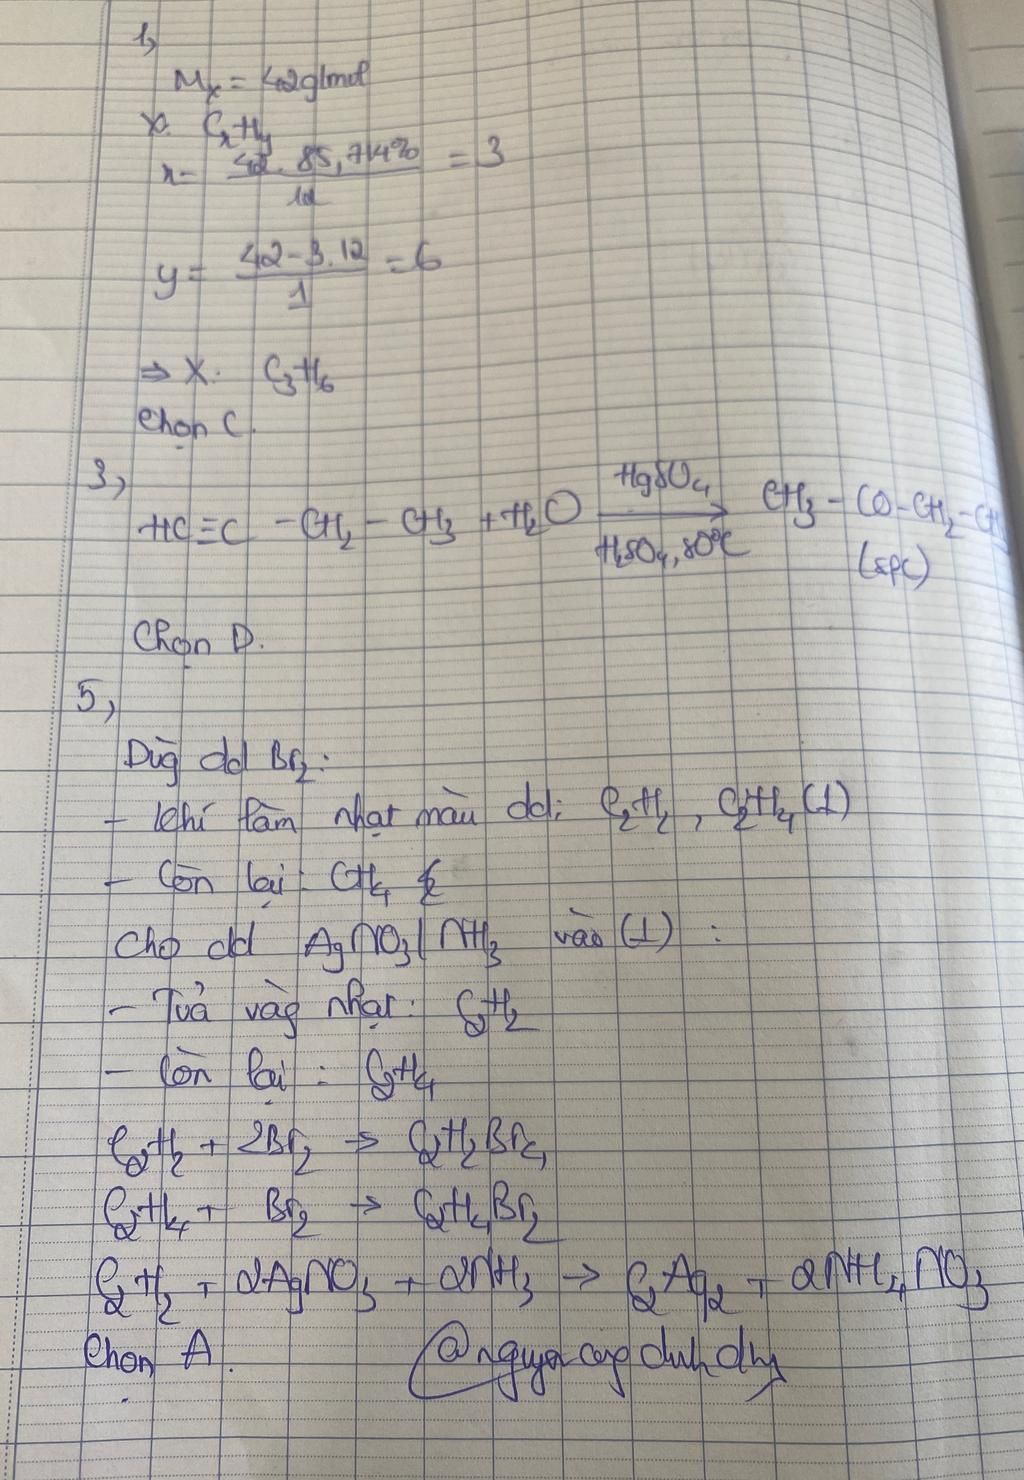 1,
Mx = 42g/mol
X: CxHy
x = 42. 85,714% / 12 = 3
y = 42 - 3.12 / 1 = 6
⇒ X: C3H6
Chọn C.
3,
HC≡C - CH2 - CH3 + H2O HgSO4 H2SO4, 80°C → CH3 - CO - CH2 - CH
(spc)
Chọn D.
5,
Dùg dd Br2:
- Khí làm nhạt màu dd: C2H2, C2H4 (1)
- Còn lại: CH4
Cho dd AgNO3/NH3 vào (1):
- Tủa vàg nhạt: C2H2
- Còn lại: C2H4
C2H2 + 2Br2 → C2H2Br4
C2H4 + Br2 → C2H4Br2
C2H2 + 2AgNO3 + 2NH3 → C2Ag2 + 2NH4NO3
Chọn A.